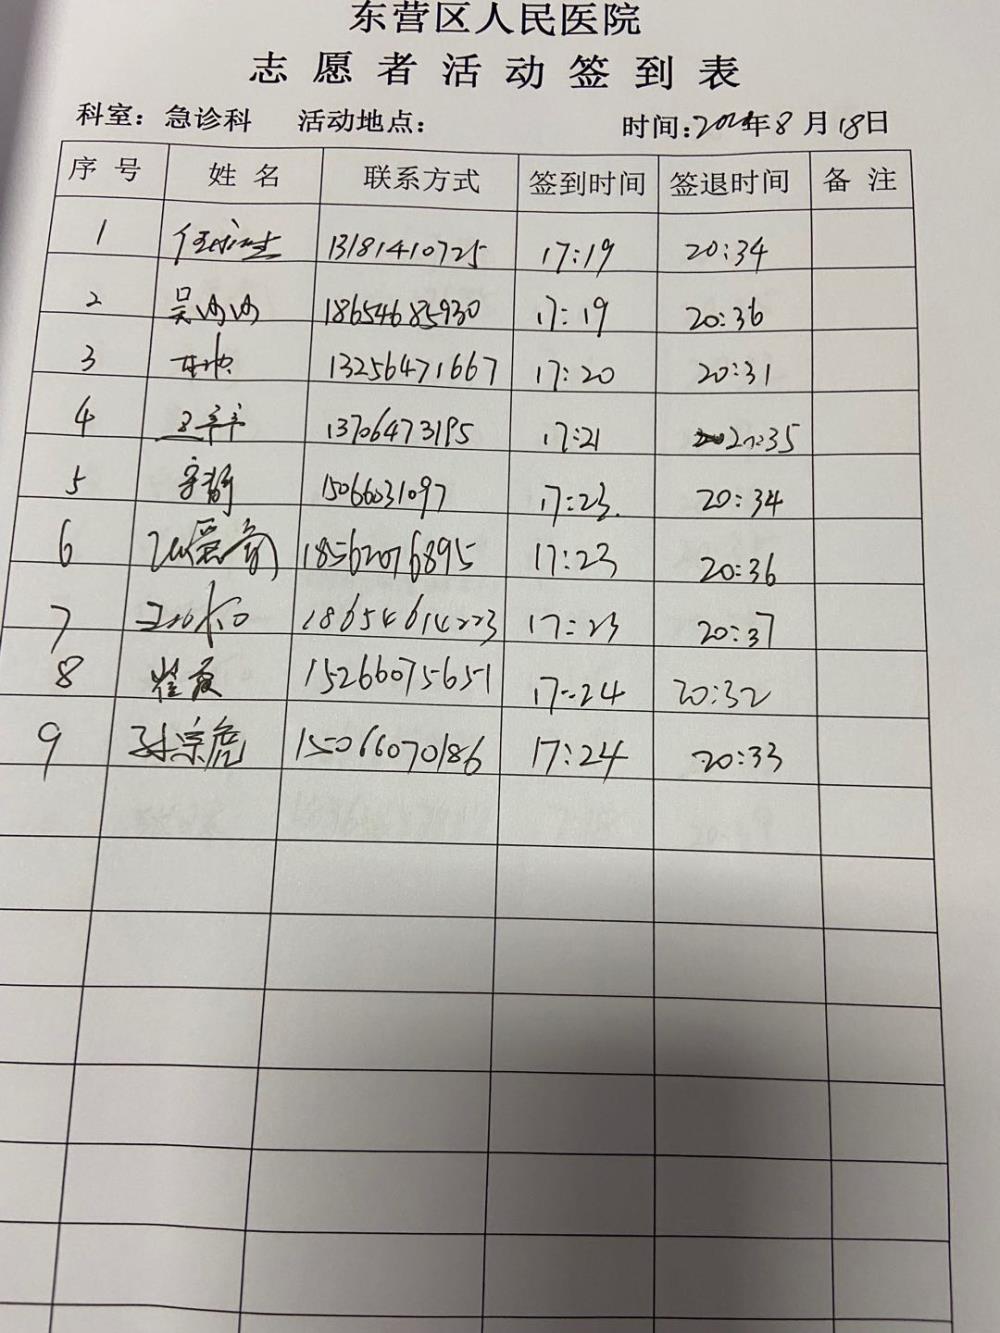 东营区人民医院
志愿者活动签到表
科室：急诊科 活动地点： 时间：年8月18日
序号 姓名 联系方式 签到时间 签退时间 备注
1 13181410725 17:19 20:34
2 吴 18654685930 17:19 20:36
3 13256471667 17:20 20:31
4 13706473195 17:21 20:35
5 15066031097 17:23. 20:34
6 18562076895 17:23 20:36
7 18654614223 17:23 20:37
8 崔霞 15266075651 17:24 20:32
9 孙宗虎 15066070186 17:24 20:33